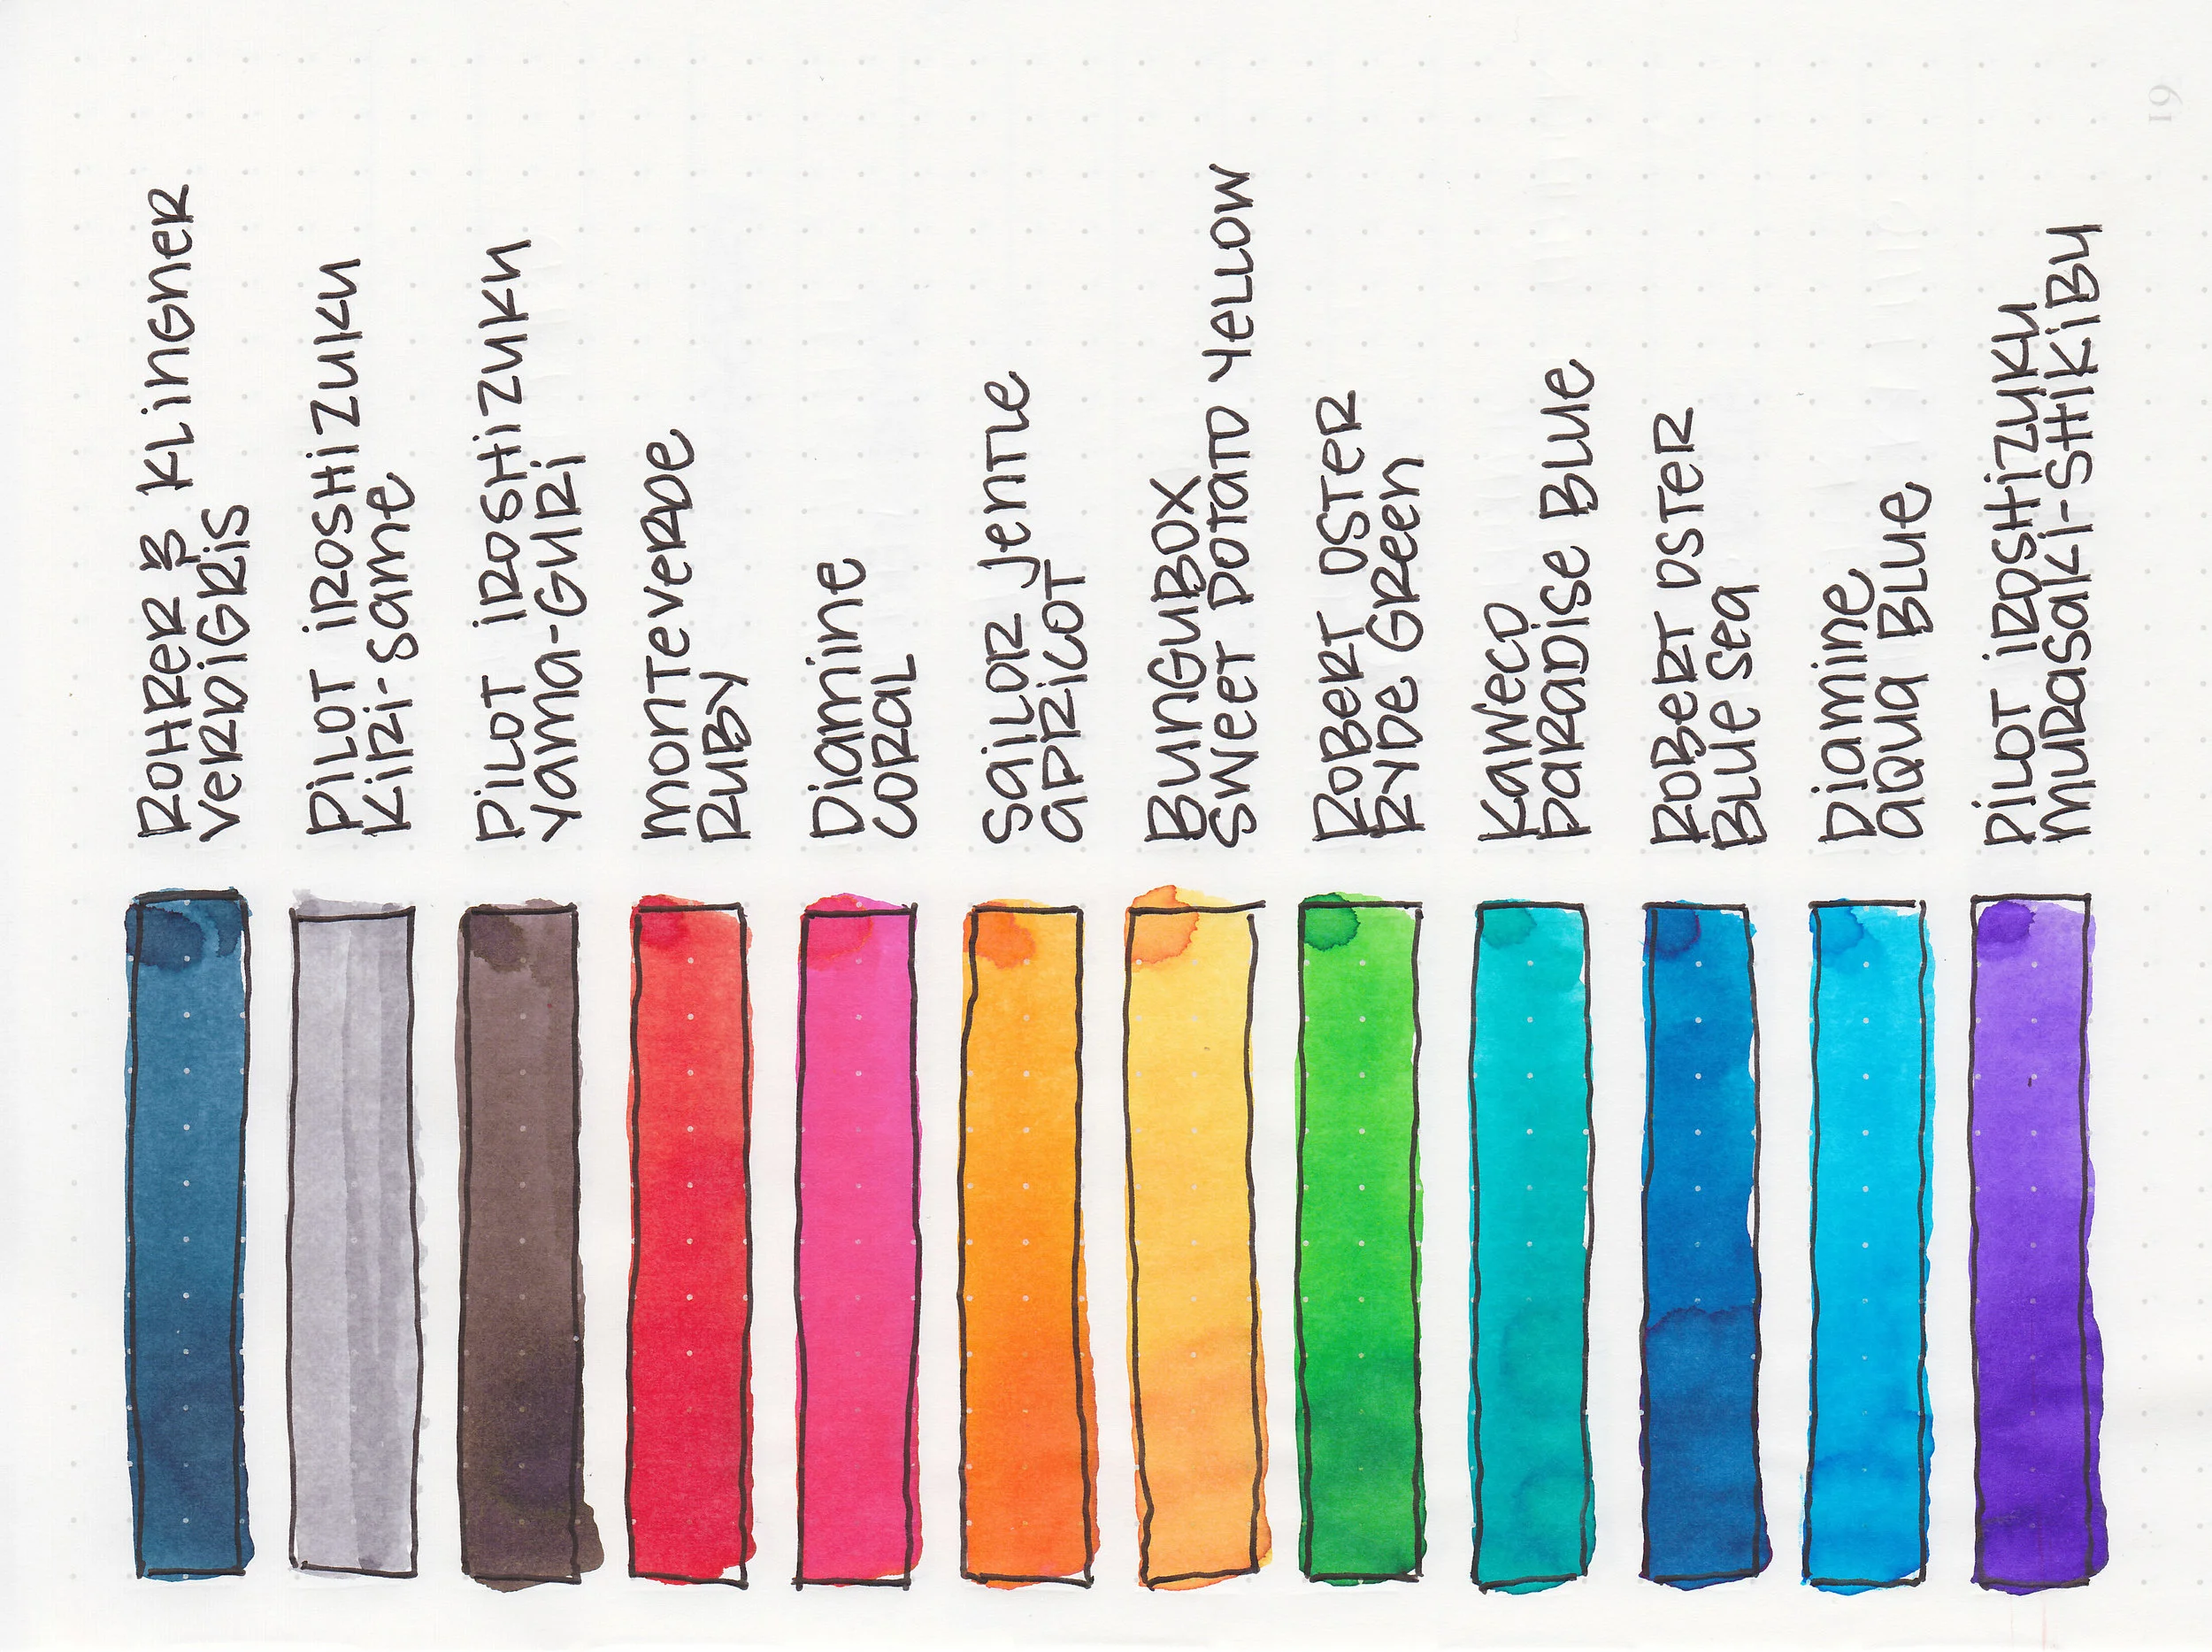 Rohrer & Klingner
Verdigris
Pilot Iroshizuku
Kiri-Same
Pilot Iroshizuku
Yama-Guri
Monteverde
Ruby
Diamine
Coral
Sailor Jentle
Apricot
BungUBox
Sweet Potato Yellow
Robert Oster
Ryde Green
Kaweco
Paradise Blue
Robert Oster
Blue Sea
Diamine
Aqua Blue
Pilot Iroshizuku
Murasaki-Shikibu
61